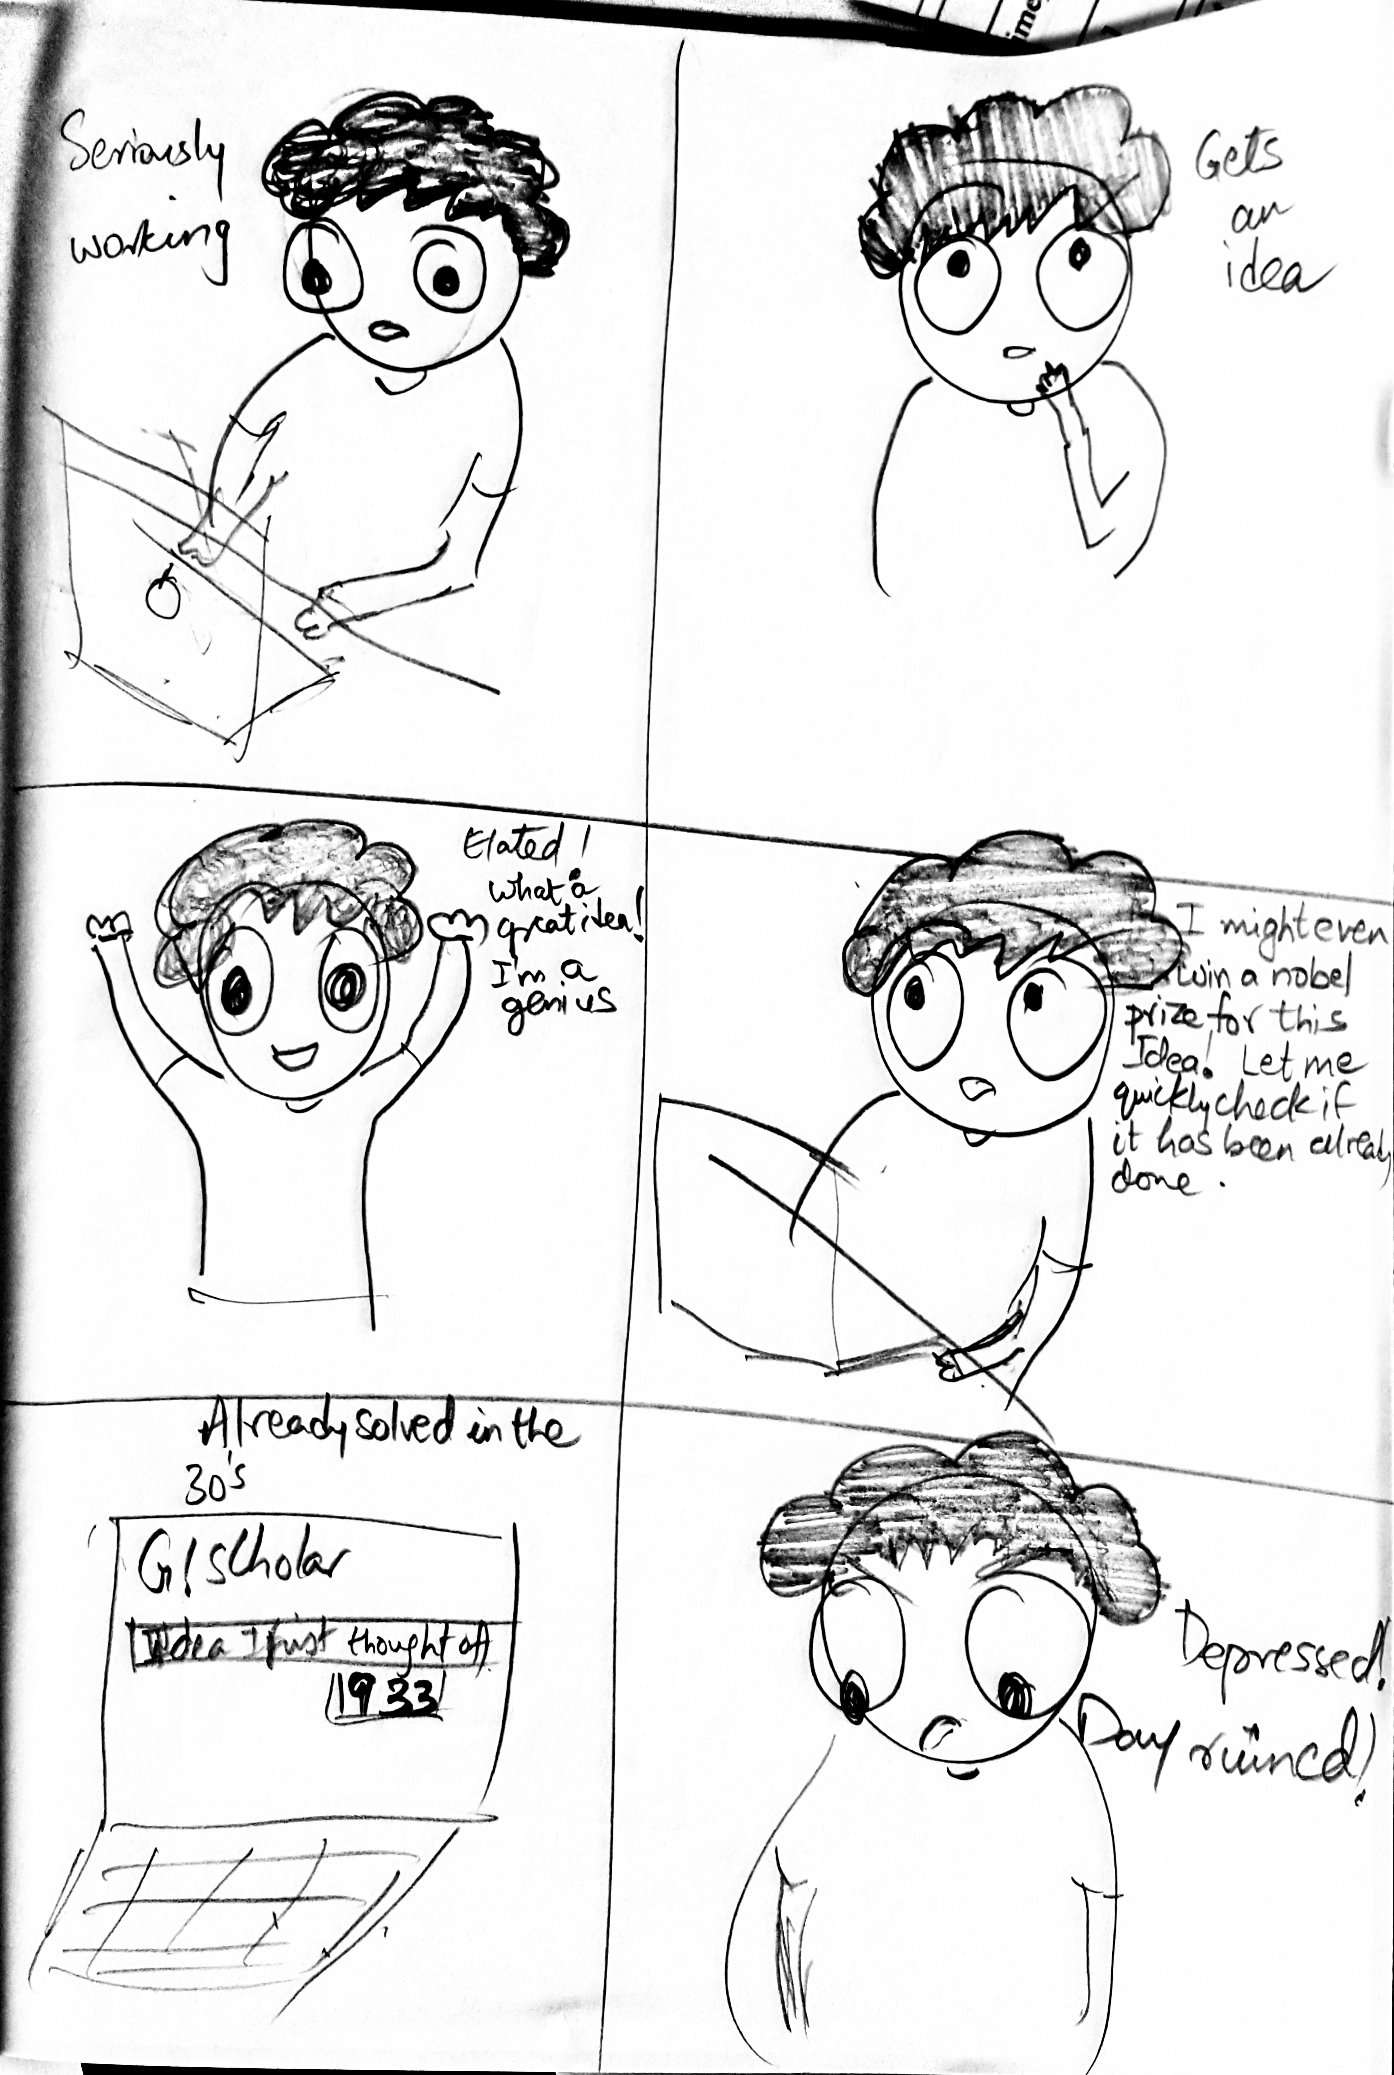 Seriously
working
Gets
an
idea
Elated!
what a
great idea!
I'm a
genius
I might even
win a nobel
prize for this
Idea! Let me
quickly check if
it has been already
done.
Already solved in the
30's
G/scholar
Idea I just thought of
1933
Depressed!
Day ruined!